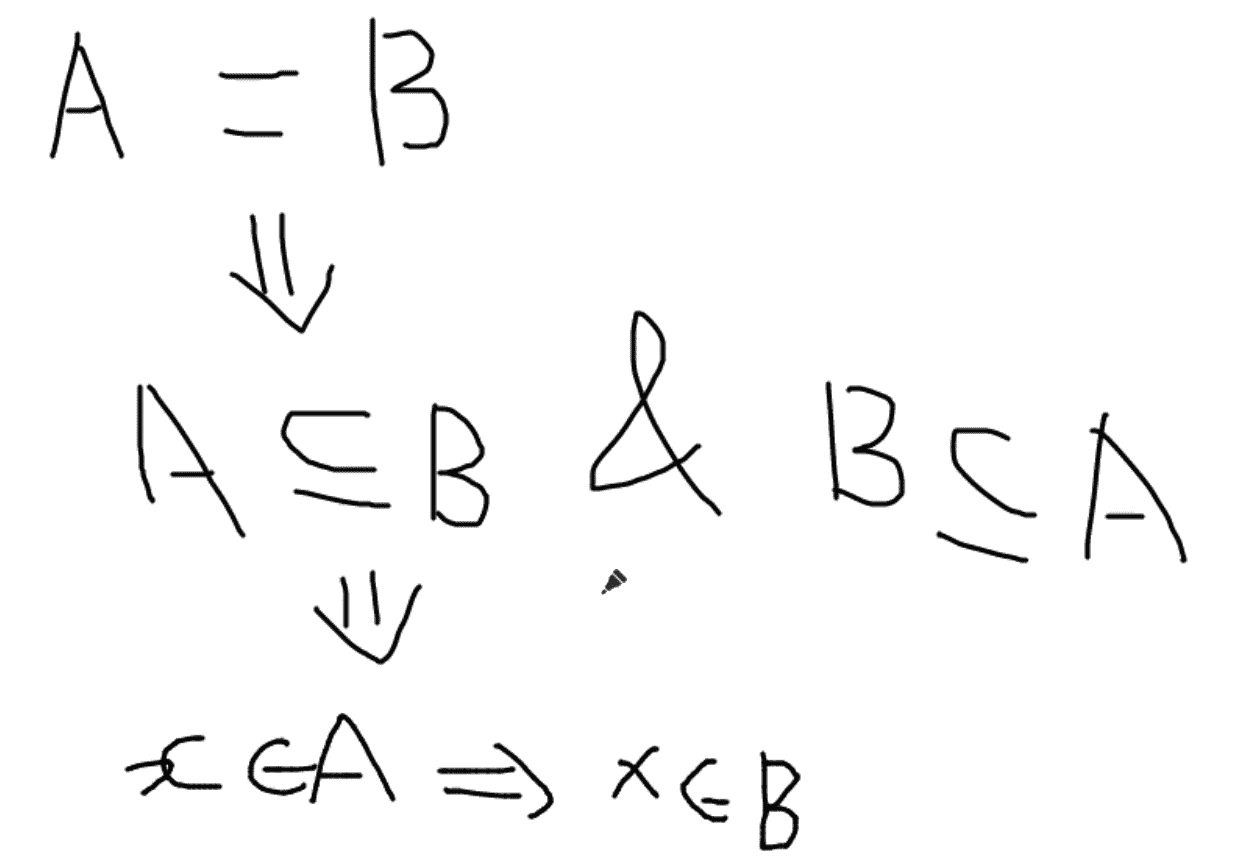 A = B
⇓
A ⊆ B & B ⊆ A
⇓
x ∈ A ⇒ x ∈ B